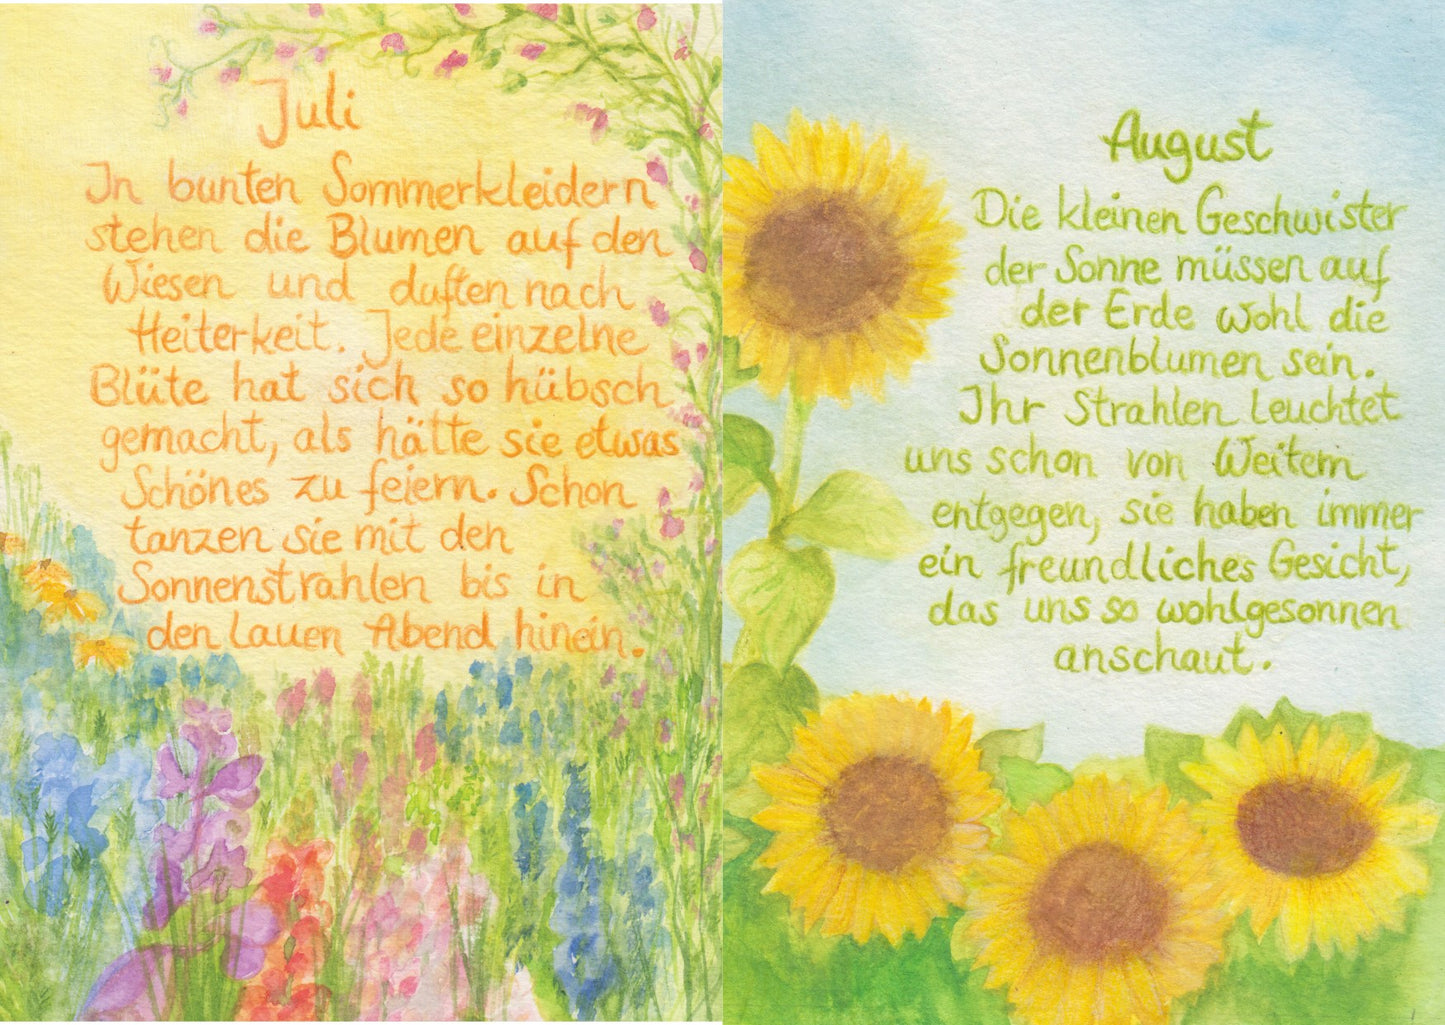 Juli
In bunten Sommerkleidern
stehen die Blumen auf den
Wiesen und duften nach
Heiterkeit. Jede einzelne
Blüte hat sich so hübsch
gemacht, als hätte sie etwas
Schönes zu feiern. Schon
tanzen sie mit den
Sonnenstrahlen bis in
den lauen Abend hinein.
August
Die kleinen Geschwister
der Sonne müssen auf
der Erde wohl die
Sonnenblumen sein.
Ihr Strahlen leuchtet
uns schon von Weitem
entgegen, sie haben immer
ein freundliches Gesicht,
das uns so wohlgesonnen
anschaut.